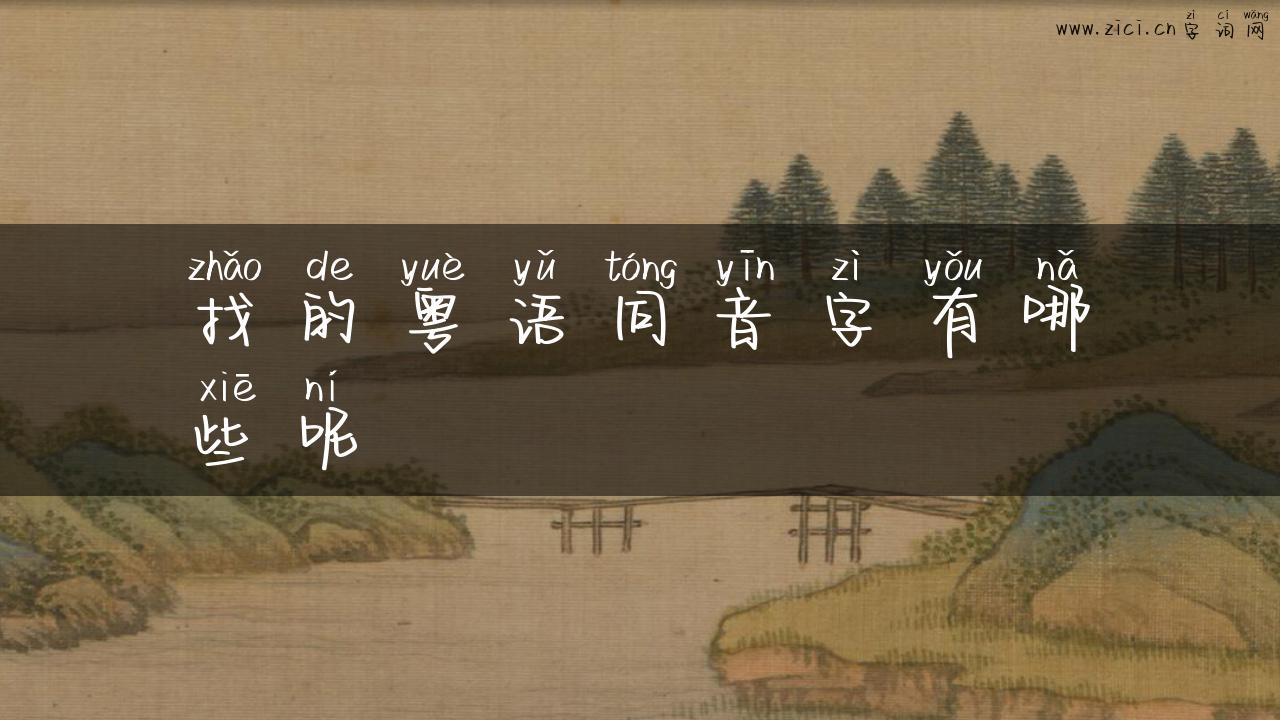 zì cí wǎng
www.zici.cn 字词网
zhǎo de yuè yǔ tóng yīn zì yǒu nǎ
找的粤语同音字有哪
xiē ní
些呢